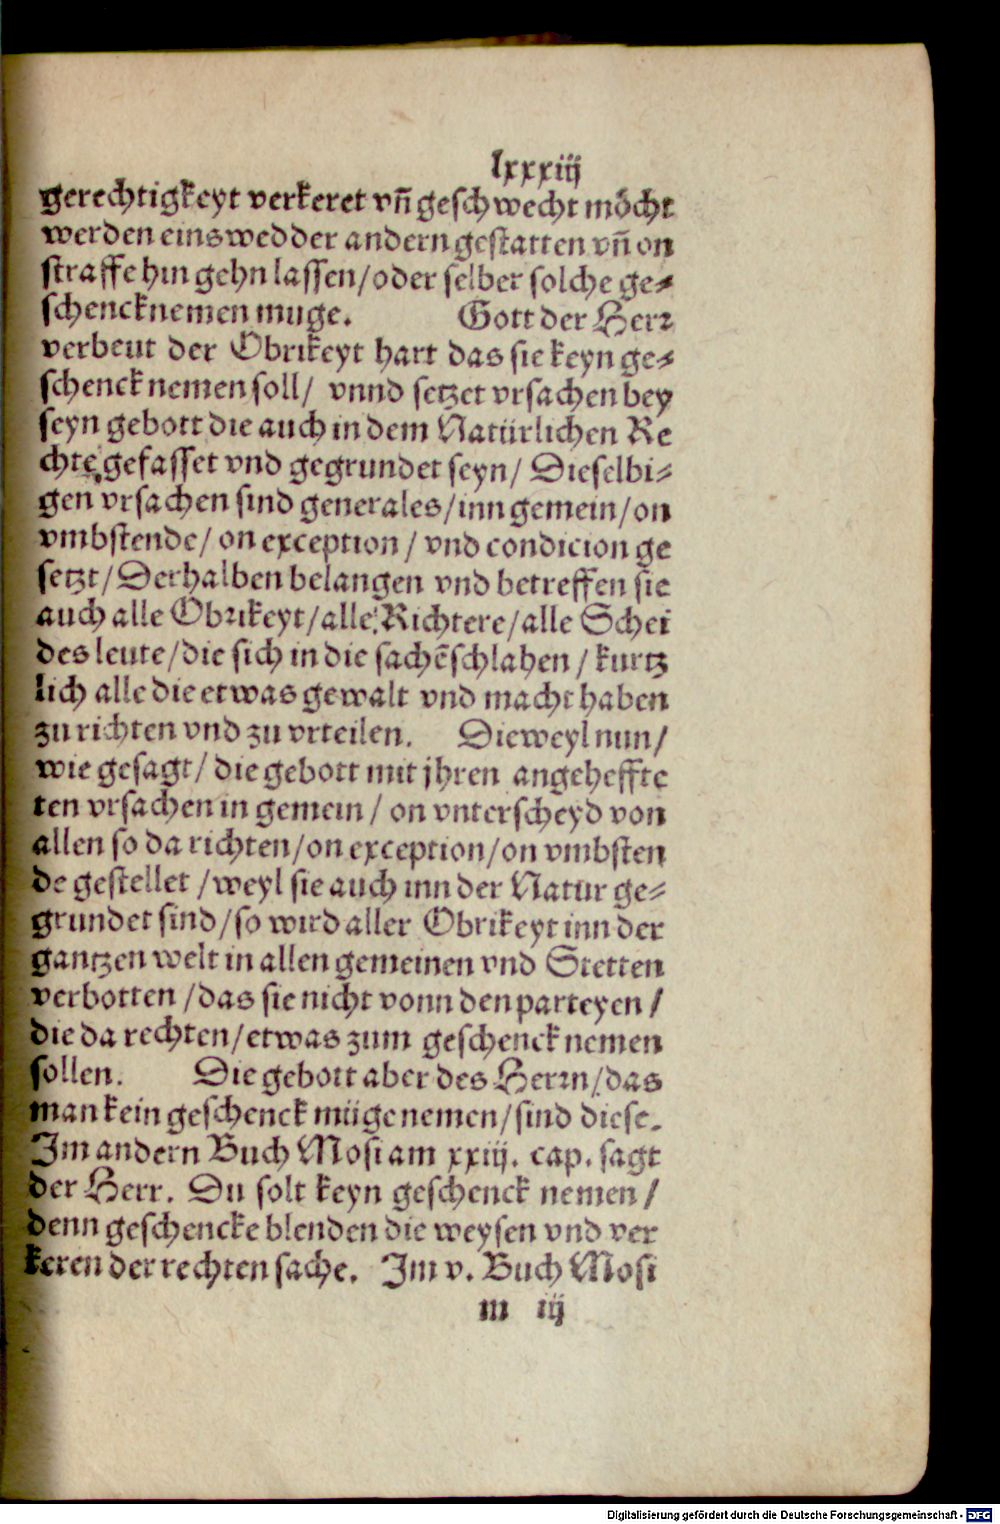 lxxxiij
gerechtigkeyt verkeret vn̄ geschwecht möcht
werden eins wedder andern gestatten vn̄ on
straffe hin gehn lassen/oder selber solche ge⸗
schenck nemen muge. Gott der Herr
verbeut der Obrikeyt hart das sie keyn ge⸗
schenck nemen soll/ vnnd setzet vrsachen bey
seyn gebott die auch in dem Natürlichen Re
chte gefasset vnd gegrundet seyn/ Dieselbi⸗
gen vrsachen sind generales/inn gemein/on
vmbstende/ on exception/ vnd condicion ge
setzt/Derhalben belangen vnd betreffen sie
auch alle Obrikeyt/alle Richtere/alle Schei
des leute/die sich in die sachē schlahen/ kurtz
lich alle die etwas gewalt vnd macht haben
zu richten vnd zu vrteilen. Dieweyl nun/
wie gesagt/ die gebott mit jhren angeheffte
ten vrsachen in gemein/ on vnterscheyd von
allen so da richten/on exception/on vmbsten
de gestellet /weyl sie auch inn der Natur ge⸗
grundet sind/so wird aller Obrikeyt inn der
gantzen welt in allen gemeinen vnd Stetten
verbotten /das sie nicht vonn den parteyen/
die da rechten/etwas zum geschenck nemen
sollen. Die gebott aber des Herrn/das
man kein geschenck müge nemen/sind diese.
Im andern Buch Mosi am xxiij. cap. sagt
der Herr. Du solt keyn geschenck nemen/
denn geschencke blenden die weysen vnd ver
keren der rechten sache. Im v. Buch Mosi
m iij
Digitalisierung gefördert durch die Deutsche Forschungsgemeinschaft - DFG